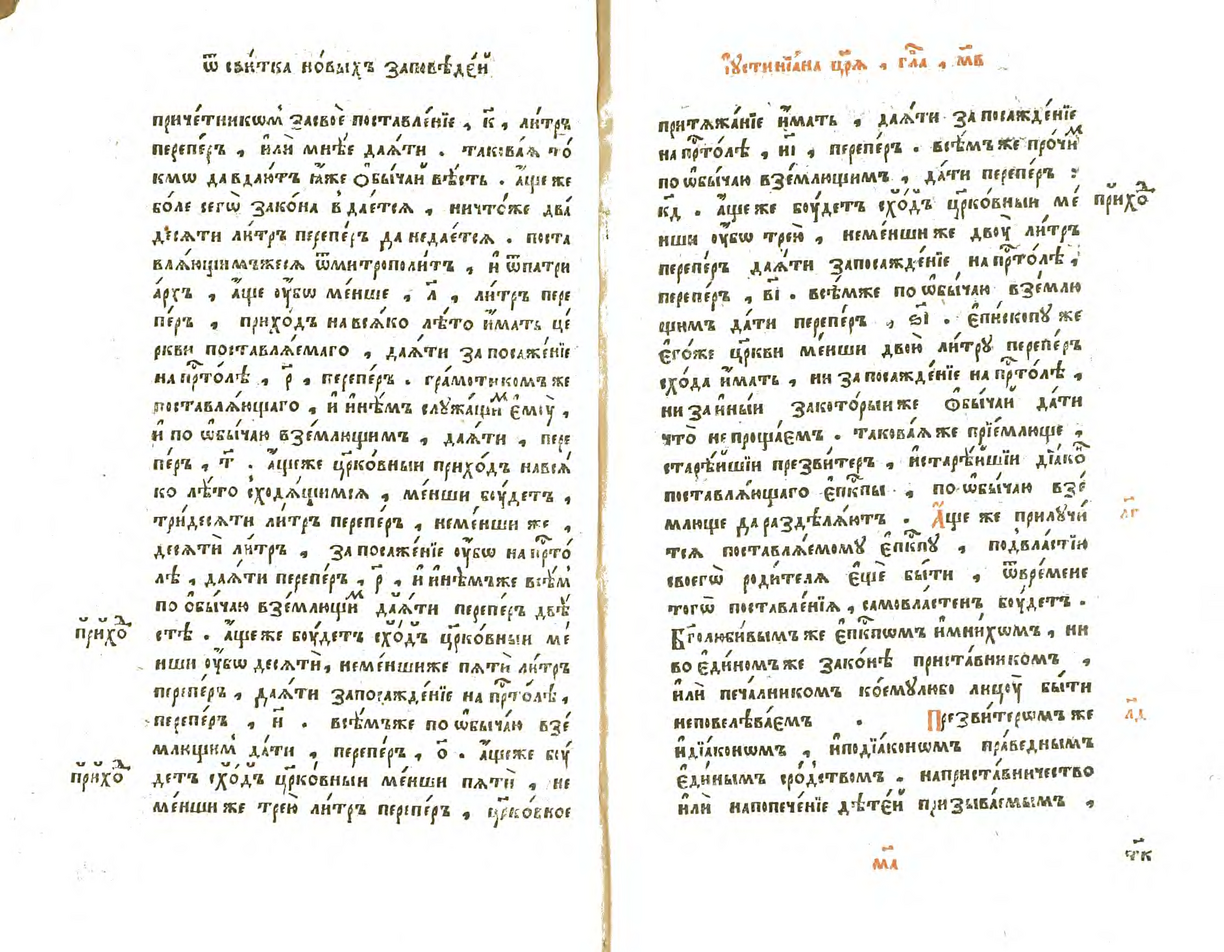 ѿ сви́тка но́выхъ за́повѣде́й
причетникѡ́м за́своѐ поставле́нїе , к҃ , ли́тръ
перепе́ръ , и҆лѝ мнѣ́е дая́ти . такова́ѧ то́
кмѡ да вдаю́тъ ꙗ҆́же ѻ҆бы́чай вѣ́сть . а҆́ще же
бо́ле сегѡ̀ зако́на в̾дае́тсѧ , ничто́же два́
десѧти ли́тръ перепе́ръ да недае́тсѧ . поста
влѧ́ющимъжесѧ ѿмитрополи́тъ , и҆ ѿпатри
а́рхъ , а҆́ще ᲂу҆́бѡ ме́нше , л҃ , ли́тръ пере
пе́ръ , прихо́дъ навсѧ́ко лѣ́то и҆́мать це́
ркви поставлѧ́емаго , даѧ́ти за посаже́нїе
на прⷭ҇то́лѣ , р҃ , перепе́ръ . гра́мотикомъ же
поставлѧ́ющаго , и҆ и҆нѣ́мъ служа́щиⷨ е҆мꙋ̀ ,
и҆ по ѡ҆бы́чаю взе́млющимъ , даѧ́ти , пере
пе́ръ , т҃ . а҆́щеже цр҃ко́вныи прихо́дъ навсѧ́
ко лѣ́то сходѧ́щимсѧ , ме́нши бꙋ́детъ ,
три́десѧти ли́тръ перепе́ръ , неме́нши же ,
десѧтѝ ли́тръ , за посаже́нїе ᲂу҆́бѡ на прⷭ҇то́
лѣ , даѧ́ти перепе́ръ , р҃ , и҆ и҆нѣ́мъже всѣ́м
по ѻ҆бы́чаю взе́млющиⷨ даѧ́ти перепе́ръ двѣ́
прихоⷣ
стѣ . а҆́щеже бꙋ́детъ схо́дъ цр҃ко́вныи ме́
нши ᲂу҆́бѡ десѧтѝ, неме́ншиже пѧтѝ ли́тръ
перепе́ръ , даѧ́ти запосажде́нїе на прⷭ҇то́лѣ ,
перепе́ръ , н҃ . всѣ́мъже по ѡ҆бы́чаю взе́
млющим да́ти , перепе́ръ , ѻ҃ . а҆́щеже бꙋ́
прихоⷣ
детъ схо́дъ цр҃ко́вныи ме́нши пѧтѝ , не
ме́нши же трею̀ ли́тръ перепе́ръ , цр҃ко́вное
І҆ꙋстинїа́на цр҃ѧ̀ , гла҃ , мв҃
притѧжа́нїе и҆́мать , даѧ́ти за посажде́нїе
на прⷭ҇то́лѣ , ні҃ , перепе́ръ . всѣ́мъ же про́чиⷨ
по ѡ҆бы́чаю взе́млющимъ , да́ти перепе́ръ :
прихоⷣ
кд҃ . а҆́ще же бꙋ́детъ схо́дъ цр҃ко́вныи ме́
нши ᲂу҆́бѡ трею̀ , неме́нши же двоꙋ̀ ли́тръ
перепе́ръ даѧ́ти запосажде́нїе на прⷭ҇то́лѣ ,
перепе́ръ , ві҃ . всѣ́мже по ѡ҆бы́чаю взе́млю
щимъ да́ти перепе́ръ , ѕі҃ . е҆пи́скопꙋ же
є҆го́же цр҃кви ме́нши двою̀ ли́трꙋ перепе́ръ
схо́да и҆́мать , ни за посажде́нїе на прⷭ҇то́лѣ ,
ни за и҆ны́й за кото́рыи же ѻ҆бы́чай да́ти
что̀ не проща́емъ . такова́ѧ же прїе́млюще ,
старѣ́йшїи презви́теръ , и҆старѣ́йшїи дїа́коⷩ
поставлѧ́ющаго є҆пⷭ҇кпы , по ѡ҆бы́чаю взе́
лг҃
млюще да раздѣлѧ́ютъ . А҆́ще же прилꙋчи́
тсѧ поставлѧ́емомꙋ є҆пⷭ҇кпꙋ , подвла́стїю
своегѡ̀ роди́телѧ є҆щѐ бы́ти , ѿвре́мене
тогѡ̀ поставле́нїѧ , самовла́стенъ бꙋ́детъ .
Бг҃олюби́вымъ же є҆пⷭ҇кпѡмъ и҆мни́хѡмъ , ни
во є҆ди́номъ же зако́нѣ приста́вникомъ ,
и҆лѝ печа́лникомъ ко́емꙋлюбо лицꙋ̀ бы́ти
лд҃
неповелѣва́емъ . Презви́терѡмъ же
и҆дїа́кономъ , и҆подїа́конѡмъ пра́веднымъ
є҆ди́нымъ сро́дствомъ . наприста́вничество
и҆лѝ напопече́нїе дѣте́й призыва́емымъ ,
ма҃
тк҃